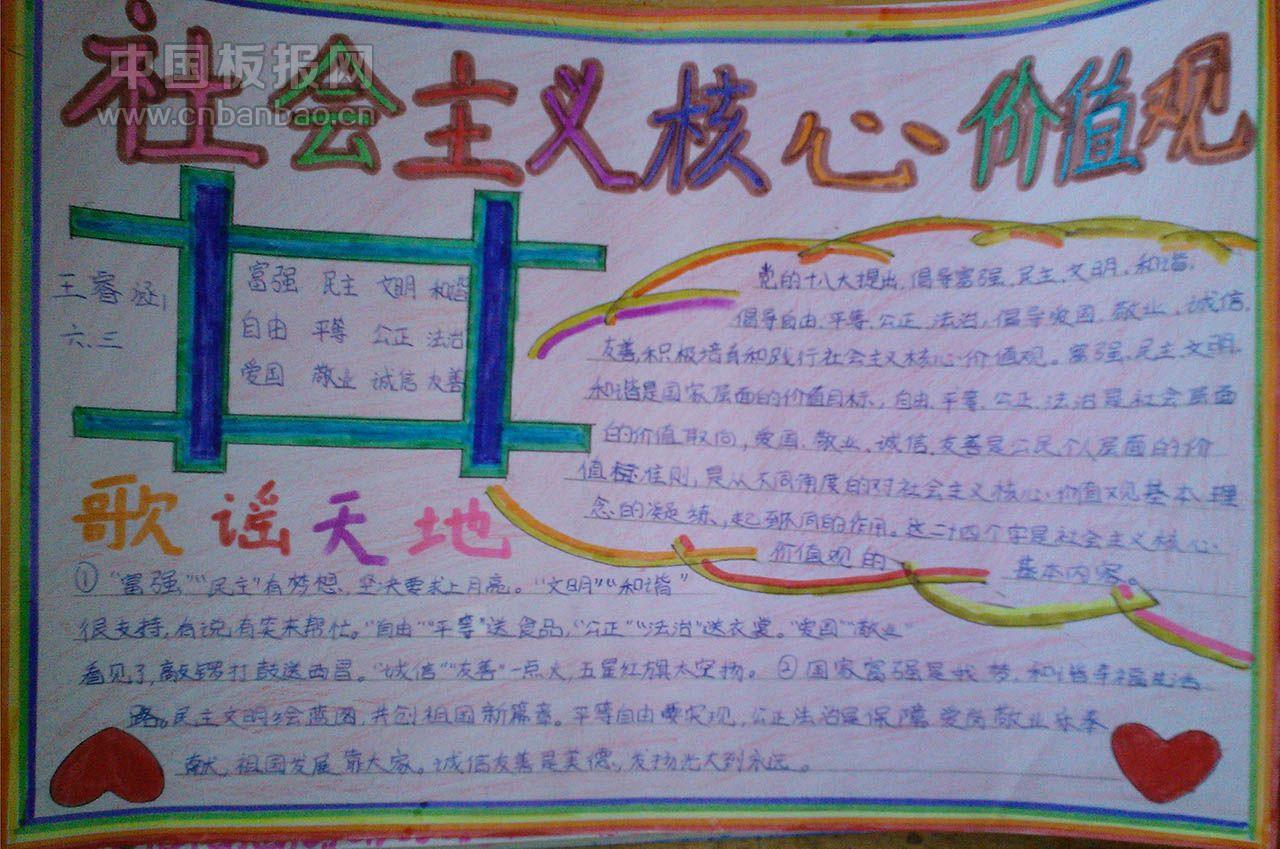 社会主义核心价值观
中国板报网
www.cnbanbao.cn
王睿涵
六.三
富强 民主 文明 和谐
自由 平等 公正 法治
爱国 敬业 诚信 友善
党的十八大提出,倡导富强、民主、文明、和谐,
倡导自由、平等、公正、法治,倡导爱国、敬业、诚信、
友善,积极培育和践行社会主义核心价值观。富强、民主、文明、
和谐是国家层面的价值目标,自由、平等、公正、法治是社会层面
的价值取向,爱国、敬业、诚信、友善是公民个人层面的价
值标准则,是从不同角度的对社会主义核心价值观基本理
念的凝练,起到不同的作用。这二十四个字是社会主义核心
价值观的 基本内容。
歌谣天地
①“富强”“民主”有梦想,坚决要求上月亮。“文明”“和谐”
很支持,有说有实来帮忙。“自由”“平等”送食品,“公正”“法治”送衣裳。“爱国”“敬业”
看见了,敲锣打鼓送西昌。“诚信”“友善”一点火,五星红旗太空扬。②国家富强是我梦,和谐幸福生活
路。民主文明绘蓝图,共创祖国新篇章。平等自由要实现,公正法治是保障。爱岗敬业乐奉
献,祖国发展靠大家。诚信友善是美德,发扬光大到永远。